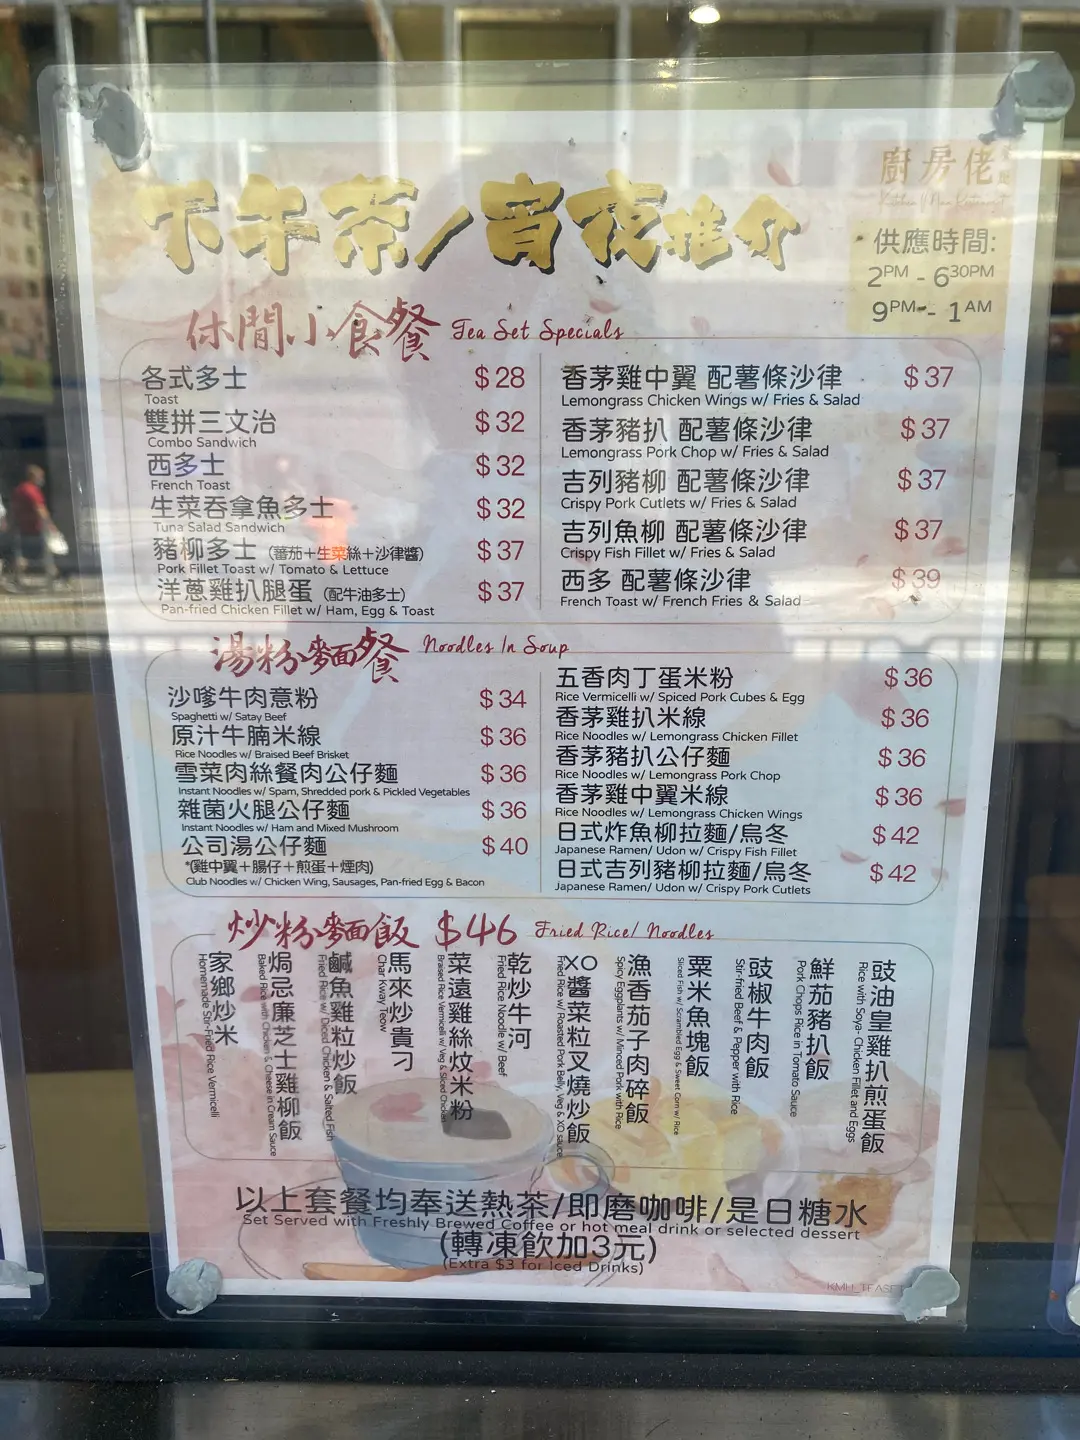 廚房佬
Kitchen Man Restaurant
下午茶/宵夜推介
供應時間:
2PM - 630PM
9PM - 1AM
休閒小食餐 Tea Set Specials
各式多士 $28
Toast
雙拼三文治 $32
Combo Sandwich
西多士 $32
French Toast
生菜吞拿魚多士 $32
Tuna Salad Sandwich
豬柳多士 (蕃茄+生菜絲+沙律醬) $37
Pork Fillet Toast w/ Tomato & Lettuce
洋蔥雞扒腿蛋 (配牛油多士) $37
Pan-fried Chicken Fillet w/ Ham, Egg & Toast
香茅雞中翼 配薯條沙律 $37
Lemongrass Chicken Wings w/ Fries & Salad
香茅豬扒 配薯條沙律 $37
Lemongrass Pork Chop w/ Fries & Salad
吉列豬柳 配薯條沙律 $37
Crispy Pork Cutlets w/ Fries & Salad
吉列魚柳 配薯條沙律 $37
Crispy Fish Fillet w/ Fries & Salad
西多 配薯條沙律 $39
French Toast w/ French Fries & Salad
湯粉麵餐 Noodles In Soup
沙嗲牛肉意粉 $34
Spaghetti w/ Satay Beef
原汁牛腩米線 $36
Rice Noodles w/ Braised Beef Brisket
雪菜肉絲餐肉公仔麵 $36
Instant Noodles w/ Spam, Shredded pork & Pickled Vegetables
雜菌火腿公仔麵 $36
Instant Noodles w/ Ham and Mixed Mushroom
公司湯公仔麵 $40
*(雞中翼+腸仔+煎蛋+煙肉)
Club Noodles w/ Chicken Wing, Sausages, Pan-fried Egg & Bacon
五香肉丁蛋米粉 $36
Rice Vermicelli w/ Spiced Pork Cubes & Egg
香茅雞扒米線 $36
Rice Noodles w/ Lemongrass Chicken Fillet
香茅豬扒公仔麵 $36
Rice Noodles w/ Lemongrass Pork Chop
香茅雞中翼米線 $36
Rice Noodles w/ Lemongrass Chicken Wings
日式炸魚柳拉麵/烏冬 $42
Japanese Ramen/ Udon w/ Crispy Fish Fillet
日式吉列豬柳拉麵/烏冬 $42
Japanese Ramen/ Udon w/ Crispy Pork Cutlets
炒粉麵飯 $46 Fried Rice/ Noodles
豉油皇雞扒煎蛋飯
Rice with Soya- Chicken Fillet and Eggs
鮮茄豬扒飯
Pork Chops Rice in Tomato Sauce
豉椒牛肉飯
Stir-fried Beef & Pepper with Rice
粟米魚塊飯
Sliced Fish w/ Scrambled Egg & Sweet Corn w/ Rice
漁香茄子肉碎飯
Spicy Eggplants w/ Minced Pork with Rice
XO醬菜粒叉燒炒飯
Fried Rice w/ Roasted Pork Belly, Veg & XO sauce
乾炒牛河
Fried Rice Noodle w/ Beef
菜遠雞絲炆米粉
Braised Rice Vermicelli w/ Veg & Sliced Chicken
馬來炒貴刁
Char Kway Teow
鹹魚雞粒炒飯
Fried Rice w/ Diced Chicken & Salted Fish
焗忌廉芝士雞柳飯
Baked Rice with Chicken & Cheese in Cream Sauce
家鄉炒米
Homemade Stir-Fried Rice Vermicelli
以上套餐均奉送熱茶/即磨咖啡/是日糖水
Set Served with Freshly Brewed Coffee or hot meal drink or selected dessert
(轉凍飲加3元)
(Extra $3 for Iced Drinks)